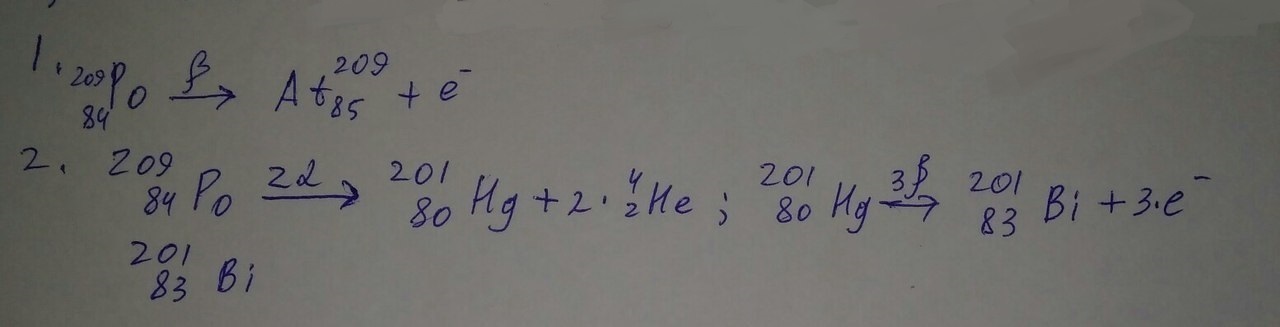 1. ²⁰⁹₈₄Po →(β) At²⁰⁹₈₅ + e⁻
2. ²⁰⁹₈₄Po →(2α) ²⁰¹₈₀Hg + 2·⁴₂He ; ²⁰¹₈₀Hg →(3β) ²⁰¹₈₃Bi + 3·e⁻
²⁰¹₈₃Bi